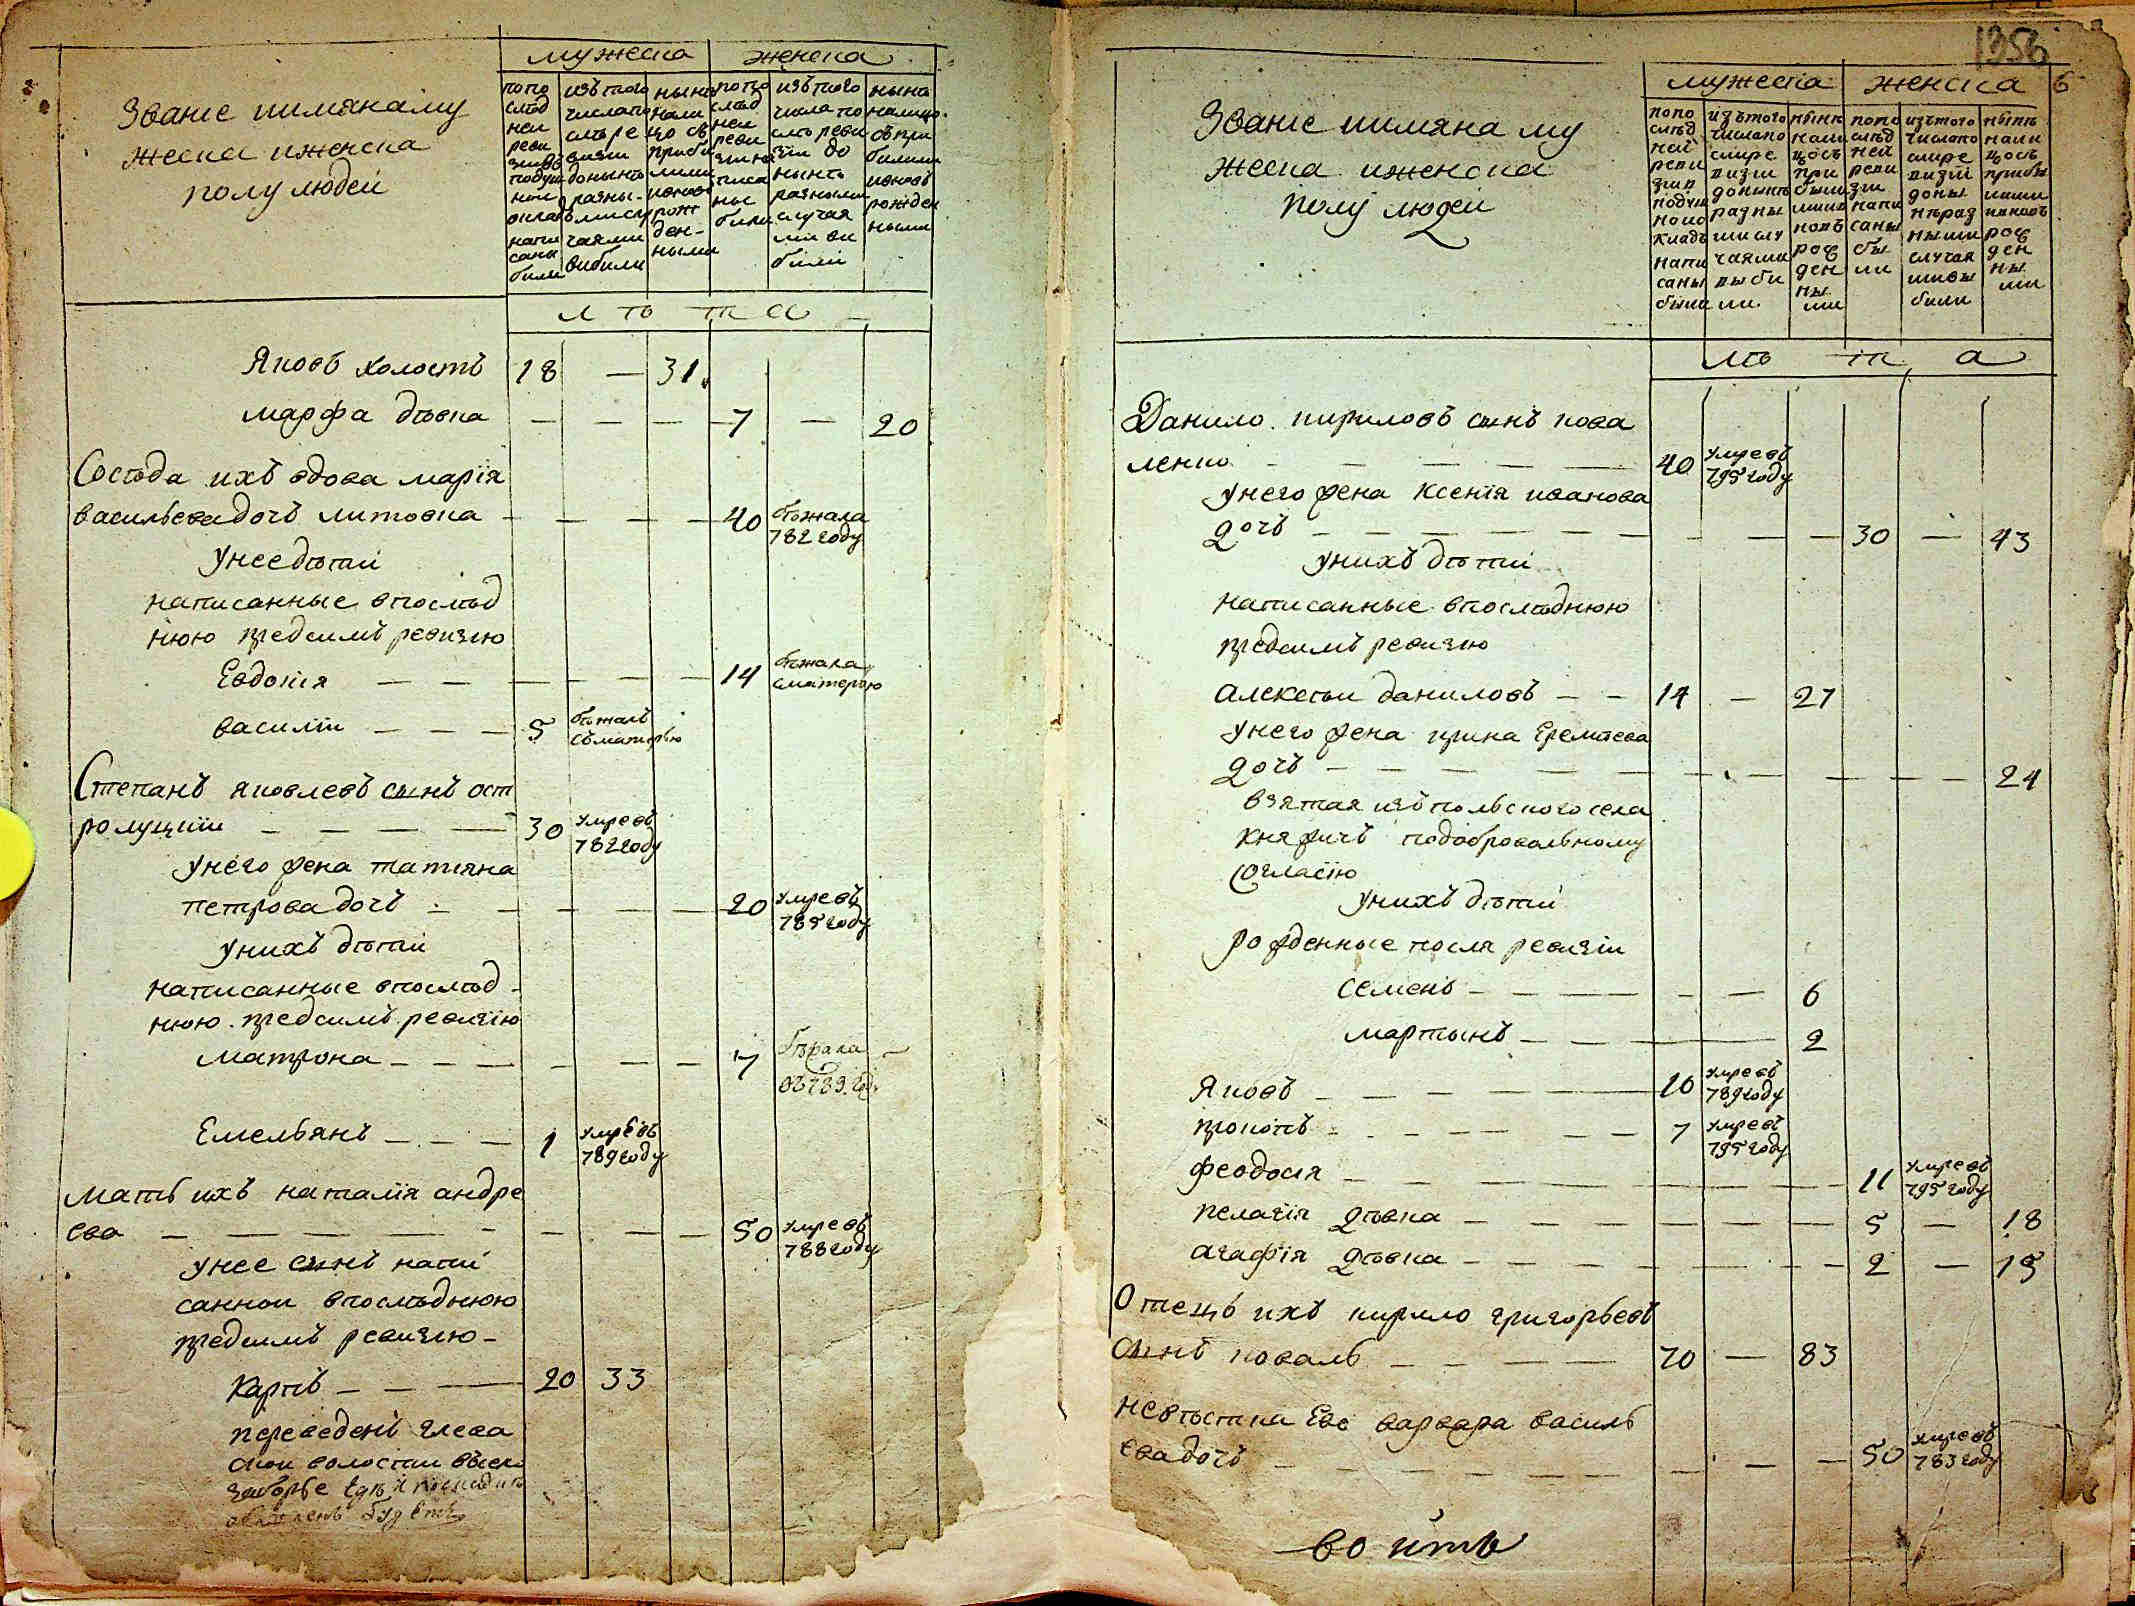 мужеска женска
Званіе иимяна му
жеска иженска
полу людей
попо
слѣд
ней
реви
зіи въ
подуш
ном
окладѣ
напи
саны
были
изътого
числапо
слѣ ре
визіи
донынѣ
разны-
мислу
чаями
выбыли
нынѣ
нали
цо съ
прибы
лыми
иновъ
рож
ден-
ными
попо
слѣд
ней
реви
зіи на
писа
ны
были
изътого
числа по
слѣ реви
зіи до
нынѣ
разными
случая
ми вы
были
нынѣ
налицо
съпри
былыми
иновъ
рожден
ными
лѣта
Яковъ холостъ 18 — 31
марфа дѣвка — — — 7 — 20
Сосѣда ихъ вдова марія
васильева дочь литовка — — — — 40 бѣжала
782 году
унее дѣти
написанные впослѣд
нюю предсимъ ревизію
Евдокія — — — — — 14 бѣжала
сматерью
василій — — — 5 бѣжалъ
съматерью
Степанъ яковлевъ сынъ ост
ролуцкій — — — — 30 умревъ
782 году
унего жена татіяна
петрова дочь — — — — 20 умревъ
785 году
унихъ дѣти
написанные впослѣд-
нюю предсимъ ревизію
матрона — — — — — 7 бѣжала —
въ 789 году
Емельянъ — — — 1 умревъ
789 году
мать ихъ наталія андре
ева — — — — — — — 50 умревъ
788 году
унее сынъ напи
санной впослѣднюю
предсимъ ревизію —
Карпъ — — — 20 33
переведенъ
волости
будетъ
1356
6
мужеска женска
Званіе иимяна му
жеска иженска
полу людей
попо
слѣд
ней
реви
зіи в
подуш
номо
кладѣ
напи
саны
были
изътого
числапо
слѣре
визіи
донынѣ
разны
мислу
чаями
выбы
ли
нынѣ
нали
цосъ
при
былы
мии
новъ
рож
ден
ны
ми
попо
слѣд
ней
реви
зіи
напи
саны
бы
ли
изътого
числапо
слѣре
визіи
доны
нѣраз
ными
случая
мивы
были
нынѣ
нали
цосъ
прибы
лыми
иновъ
рож
ден
ны
ми
лѣта
Данило кириловъ сынъ кова
ленко — — — — — 40 умревъ
795 году
унего жена Ксенія иванова
дочь — — — — — — — — — 30 — 43
унихъ дѣти
написанные впослѣднюю
предсимъ ревизію
алексѣй даниловъ — — 14 — 27
унего жена ирина Еремѣева
дочь — — — — — — — — — — 24
взятая изъпольского села
княжичъ подобровольному
согласію
унихъ дѣти
рожденные посля ревизіи
семенъ — — — — — 6
мартынъ — — — 2
Яковъ — — — — — 10 умревъ
789 году
прокопъ — — — — — 7 умревъ
795 году
феодосія — — — — — — — — 11 умревъ
795 году
пелагія дѣвка — — — — — — — 5 — 18
агафія дѣвка — — — — — — — 2 — 15
Отецъ ихъ кирило григорьевъ
сынъ коваль — — — — 70 — 83
невѣстка Ево варвара василь
ева дочь — — — — — — — — — 50 умревъ
783 году
войтъ